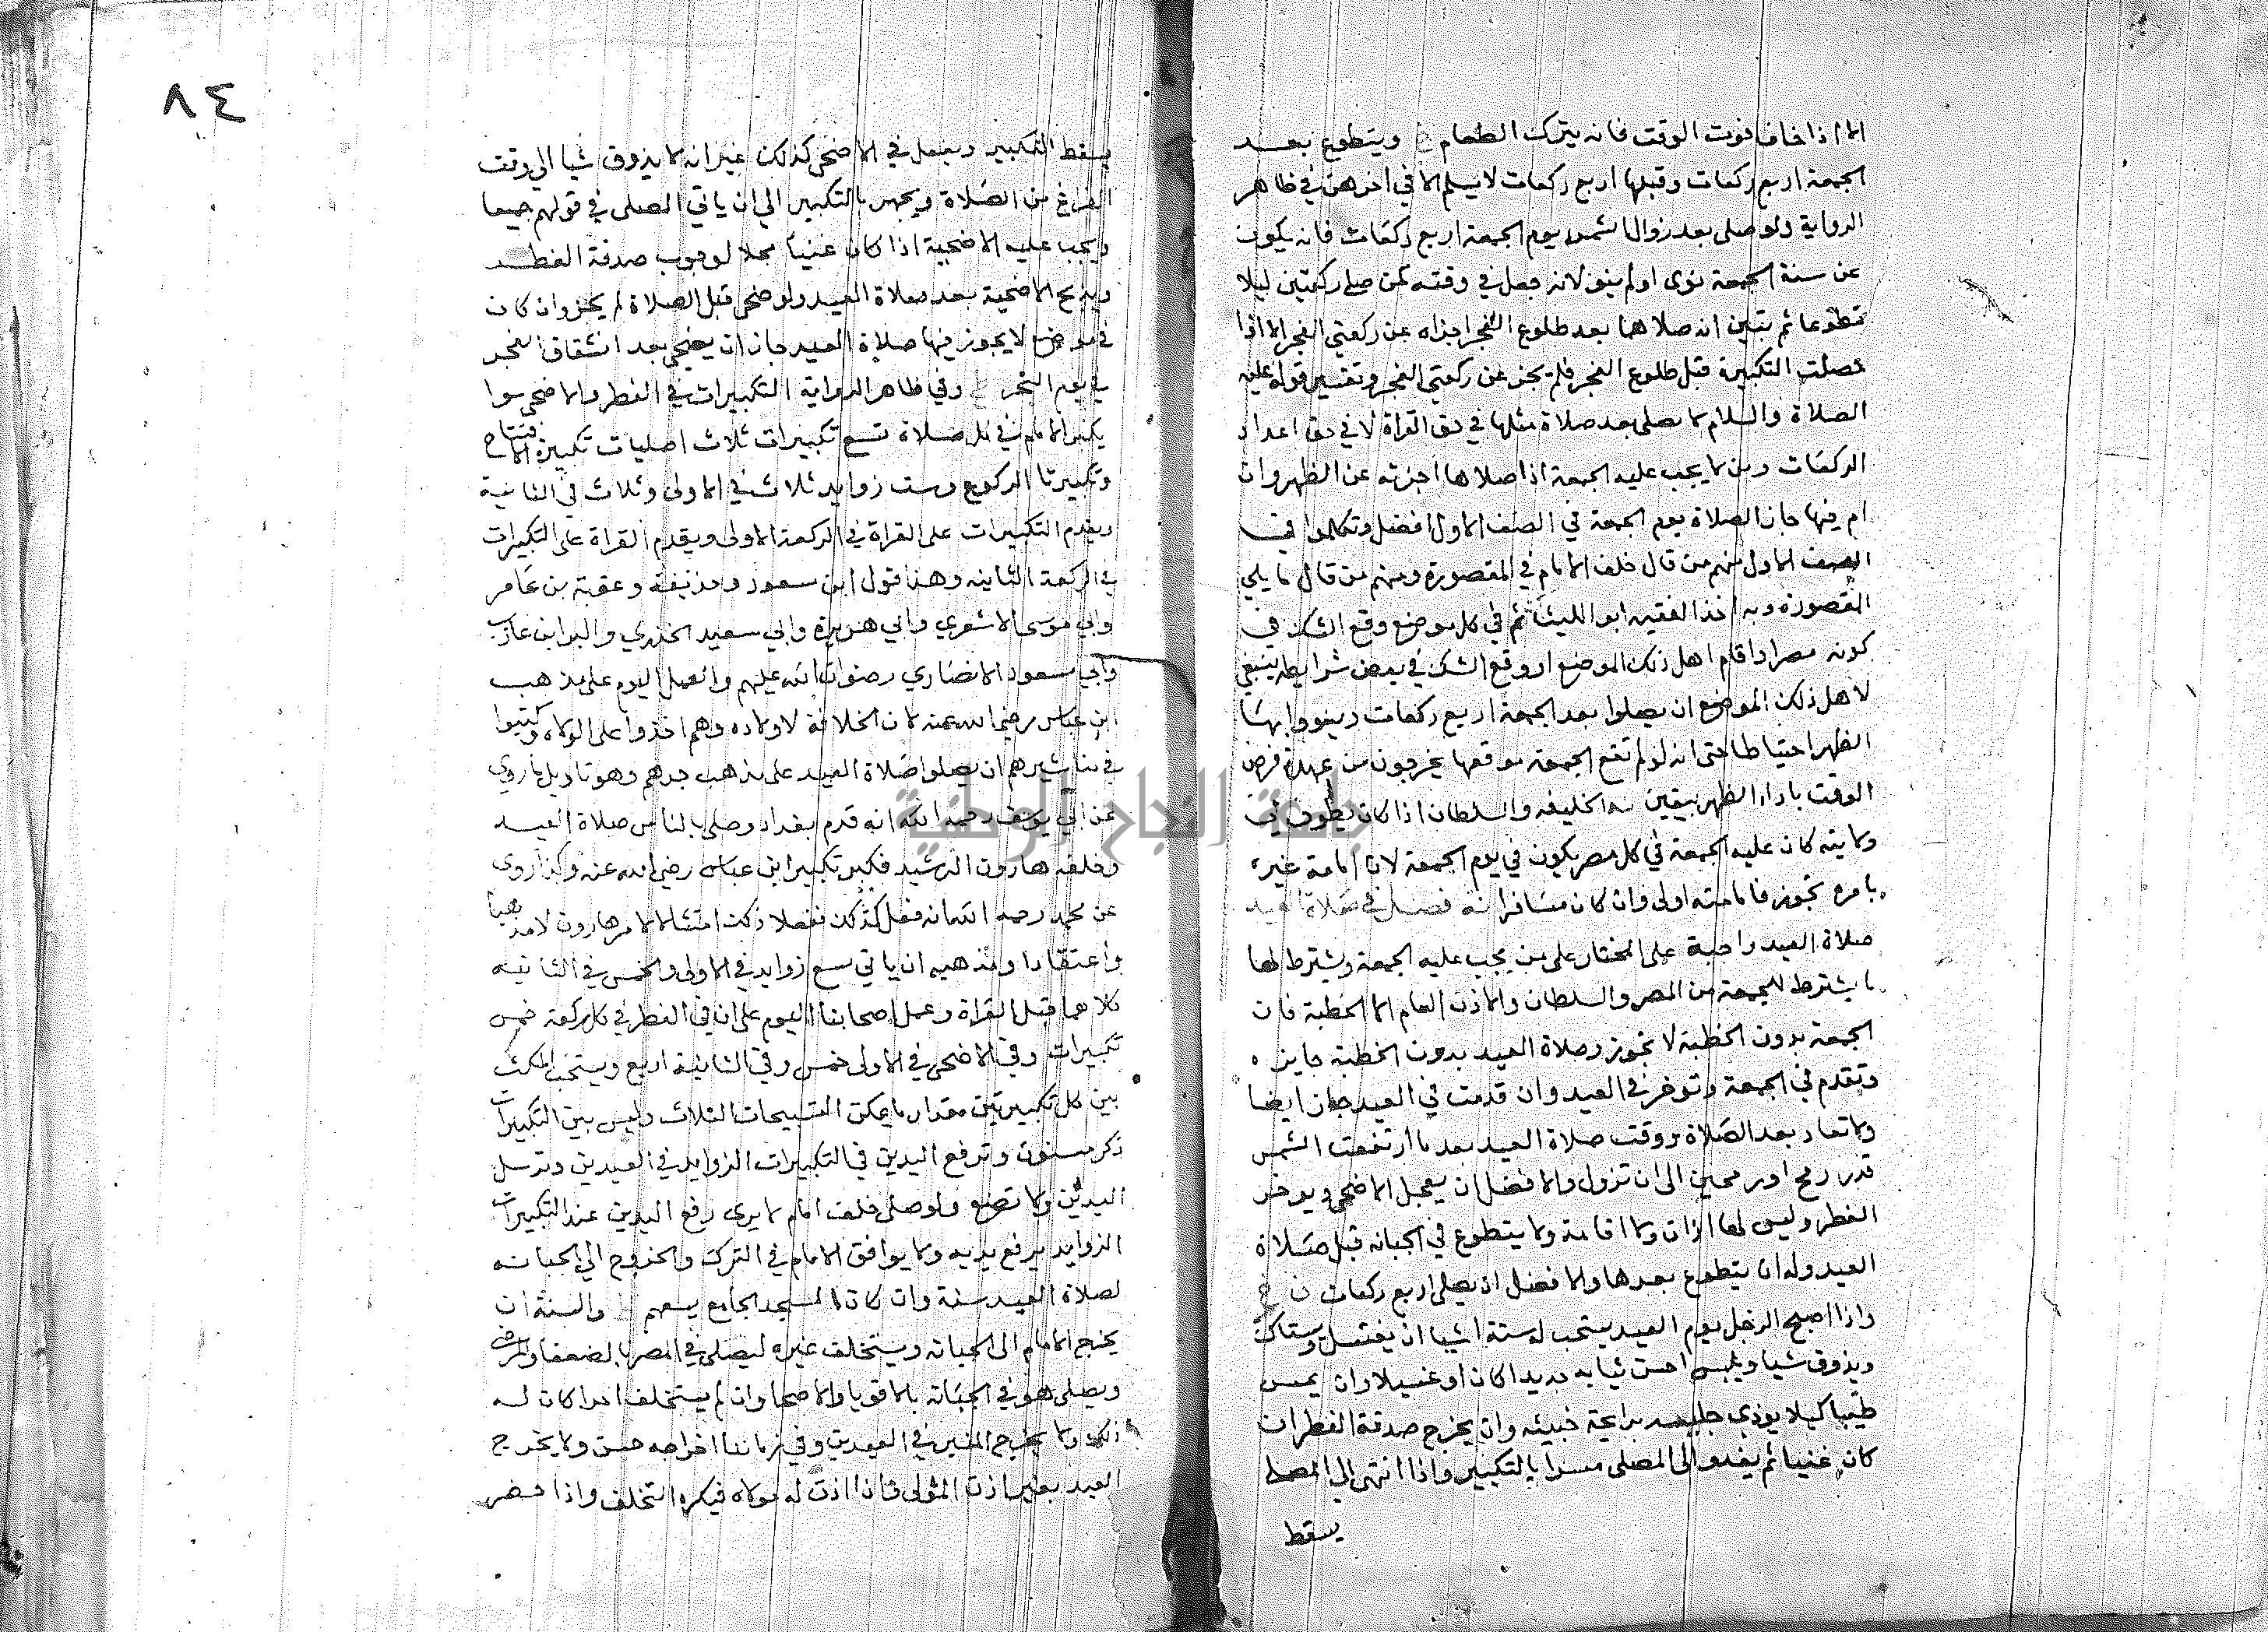 الا اذا خاف فوت الوقت فانه يترك الطعام ويتطوع بعد
الجمعة اربع ركعات وقبلها اربع ركعات لا يسلم الا في اخرهن في ظاهر
الرواية ولو صلى بعد زوال الشمس يوم الجمعة اربع ركعات فانه يكون
عن سنة الجمعة نوى او لم ينو لانه فعل في وقته كمن صلى ركعتين ليلا
تطوعا ثم تبين انه صلاهما بعد طلوع الفجر اجزاه عن ركعتي الفجر الا اذا
حصلت التكبيرة قبل طلوع الفجر فلم يجز عن ركعتي الفجر وتفسير قوله عليه
الصلاة والسلام لا يصلى بعد صلاة مثلها في حق القراة لا في حق اعداد
الركعات ومن لا يجب عليه الجمعة اذا صلاها اجزته عن الظهر وان
ام فيها جاز الصلاة يوم الجمعة في الصف الاول افضل وتكلموا في
الصف الاول منهم من قال خلف الامام في المقصورة ومنهم من قال ما يلي
المقصورة وبه اخذ الفقيه ابو الليث ثم في كل موضع وقع الشك في
كونه مصرا واقام اهل ذلك الموضع او وقع الشك في بعض شرايطه ينبغي
لاهل ذلك الموضع ان يصلوا بعد الجمعة اربع ركعات وينووا بها
الظهر احتياطا حتى انه لو لم تقع الجمعة موقعها يخرجون من عهدة فرض
الوقت باداء الظهر بيقين الخليفه والسلطان اذا كان يطوف في
ولايته كان عليه الجمعة في كل مصر يكون في يوم الجمعة لان امامة غيره
بامره تجوز فامامته اولى وان كان مسافرا فصل في صلاة العيد
صلاة العيد واجبة على المختار على من يجب عليه الجمعة ويشترط لها
ما يشترط للجمعة من المصر والسلطان والاذن العام الا الخطبة فان
الجمعة بدون الخطبة لا تجوز وصلاة العيد بدون الخطبة جايزه
وتقدم في الجمعة وتوخر في العيد وان قدمت في العيد جاز ايضا
ولا تعاد بعد الصلاة ووقت صلاة العيد بعد ما ارتفعت الشمس
قدر رمح او رمحين الى ان تزول والافضل ان يعجل الاضحى ويوخر
الفطر وليس لها اذان ولا اقامة ولا يتطوع في الجبانه قبل صلاة
العيد وله ان يتطوع بعدها والافضل ان يصلي اربع ركعات
واذا اصبح الرجل يوم العيد يستحب له ستة اشيا ان يغتسل ويستاك
ويذوق شيا ويلبس احسن ثيابه جديدا كان او غسيلا وان يمس
طيبا كيلا يوذي جليسه برايحة خبيثه وان يخرج صدقة الفطر ان
كان غنيا ثم يغدو الى المصلى مسرا بالتكبير واذا انتهى الى المصلى
يسقط
٨٤
يسقط التكبير ويفعل في الاضحى كذلك غير انه لا يذوق شيا الى وقت
الفراغ من الصلاة ويجهر بالتكبير الى ان ياتي المصلى في قولهم جميعا
ويجب عليه الاضحية اذا كان غنيا محلا لوجوب صدقة الفطر
ويذبح الاضحية بعد صلاة العيد ولو ضحى قبل الصلاة لم يجز وان كان
في موضع لا يجوز فيها صلاة العيد جاز ان يضحي بعد انشقاق الفجر
في يوم النحر وفي ظاهر الرواية التكبيرات في الفطر والاضحى سوا
يكبر الامام في كل صلاة تسع تكبيرات ثلاث اصليات تكبيرة الافتتاح
وتكبيرتا الركوع وست زوايد ثلاث في الاولى وثلاث في الثانية
ويقدم التكبيرات على القراة في الركعة الاولى ويقدم القراة على التكبيرات
في الركعة الثانيه وهذا قول ابن مسعود وحذيفة وعقبة بن عامر
وابي موسى الاشعري وابي هريرة وابي سعيد الخدري والبرا ابن عازب
وابي مسعود الانصاري رضوان الله عليهم والعمل اليوم على مذهب
ابن عباس رضي الله عنه لان الخلافة لاولاده وهم اخذوا على الولاه وكتبوا
في مناشيرهم ان يصلوا صلاة العيد على مذهب جدهم وهو تاويل ما روي
عن ابي يوسف رحمه الله انه قدم بغداد وصلى بالناس صلاة العيد
وخلفه هارون الرشيد فكبر تكبير ابن عباس رضي الله عنه وكذا روي
عن محمد رحمه الله انه فعل كذلك ففعلا ذلك امتثالا لامر هارون لا مذهبا
واعتقادا ومذهبه ان ياتي زوايد في الاولى والخمس في الثانيه
كلاهما قبل القراة وعمل اصحابنا اليوم على ان في الفطر في كل ركعة خمس
تكبيرات وفي الاضحى في الاولى خمس وفي الثانية اربع ويستحب المكث
بين كل تكبيرتين مقدار ما يمكن التسبيحات الثلاث وليس بين التكبيرات
ذكر مسنون وترفع اليدين في التكبيرات الزوايد في العيدين وترسل
اليدين ولا تضع ولو صلى خلف امام لا يرى رفع اليدين عند التكبيرات
الزوايد يرفع يديه ولا يوافق الامام في الترك والخروج الى الجبانه
لصلاة العيد سنة وان كان المسجد الجامع يسعهم والسنة ان
يخرج الامام الى الجبانه ويستخلف غيره ليصلي في المصر بالضعفا والمرضى
ويصلي هو في الجبانة بالاقويا والاصحا وان لم يستخلف احدا كان له
ذلك ولا يخرج المنبر في العيدين وفي زماننا اخراجه حسن ولا يخرج
العبد بغير اذن المولى فان اذن له مولاه فيكره التخلف واذا حضر
جامعة النجاح الوطنية